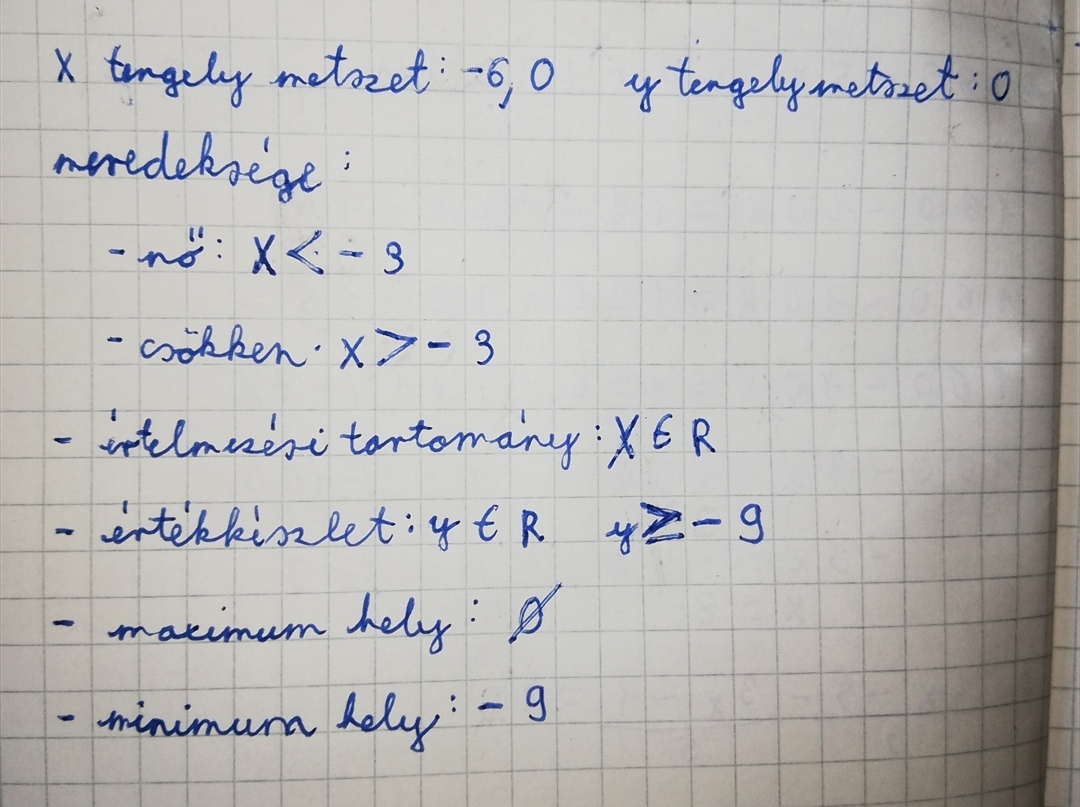 x tengely metszet: -6, 0 y tengelymetszet: 0
meredeksége:
- nő: x < - 3
- csökken. x > - 3
- értelmezési tartomány: x ∈ R
- értékkészlet: y ∈ R y ≥ - 9
- maximum hely: Ø
- minimum hely: - 9